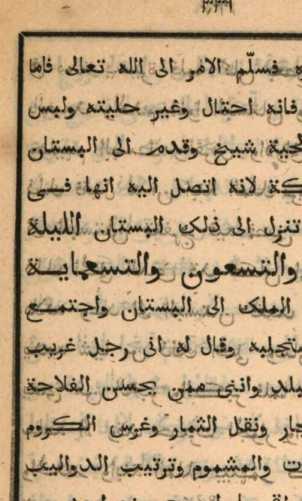 ٣٣٦
فسلّم الامر الى الله تعالى فاما
فانه احتال وغير حليته ولبس
شيخ وقدم الى البستان
لانه اتصل اليه انها فى
تنزل الى ذلك البستان الليلة
والتسعون والتسعماية
الملك الى البستان واجتمع
وقال له انى رجل غريب
وانى ممن يحسن الفلاحة
ونقل الثمار وغرس الكروم
والمشموم وترتيب الدواليب